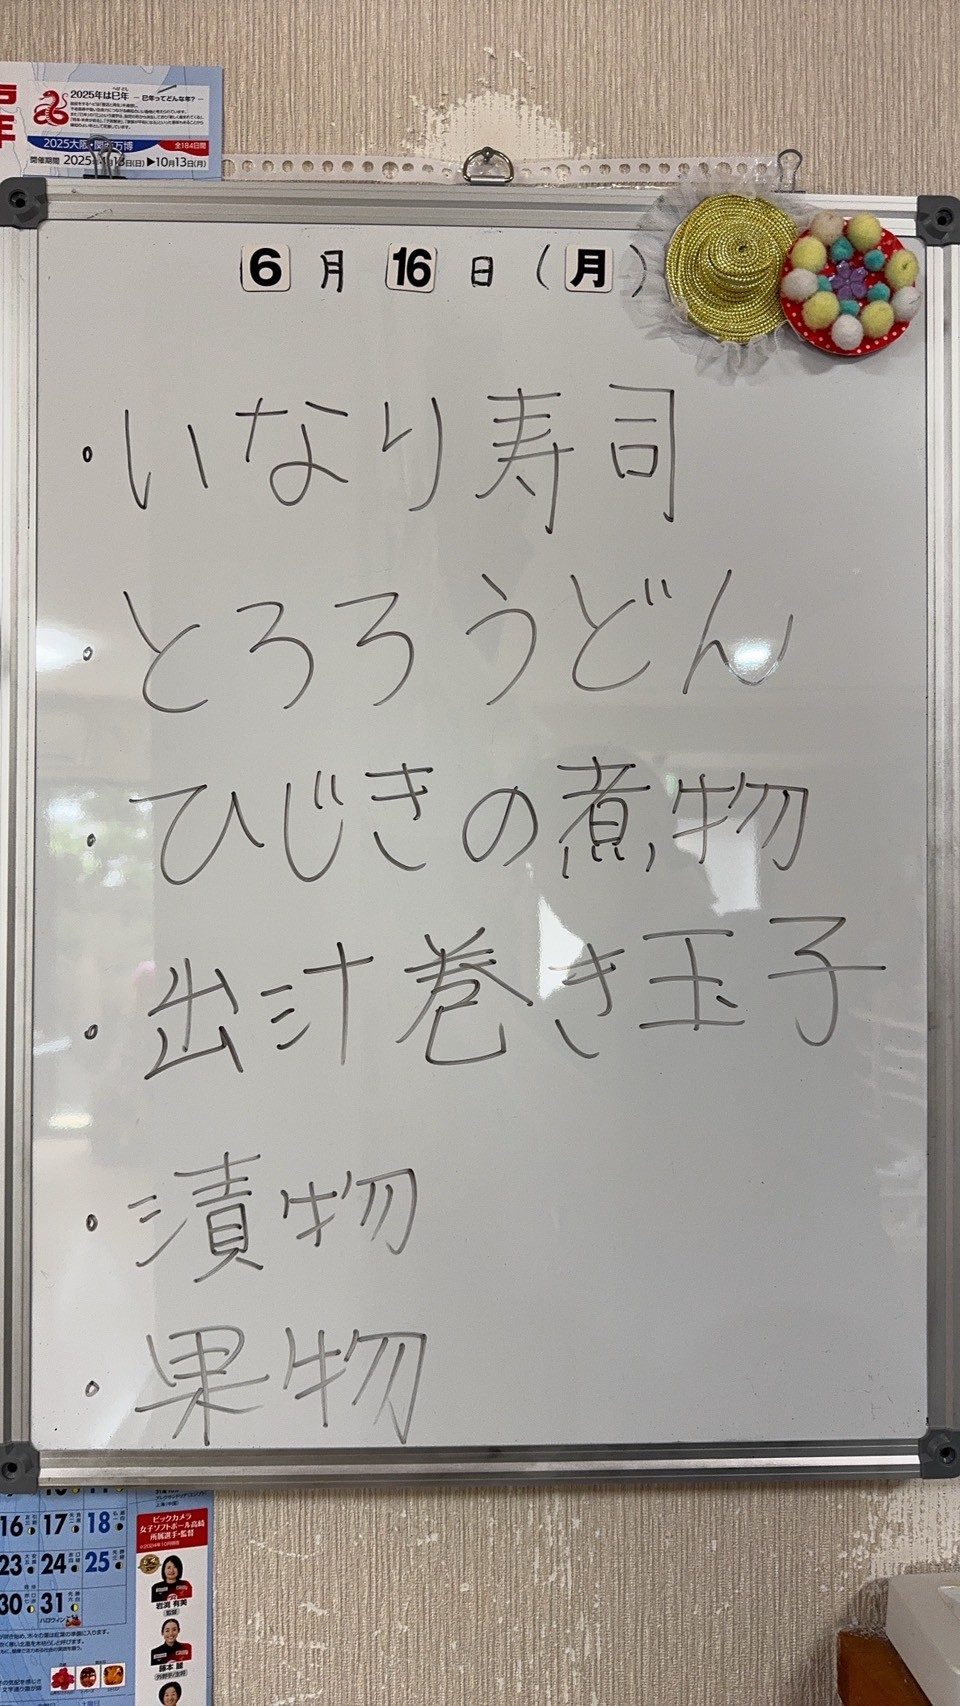 2025年は巳年 ― 巳年ってどんな年? ―
2025大阪・関西万博 全184日間
開催期間 2025年4月13日(日)▶10月13日(月)
6月16日(月)
・いなり寿司
・とろろうどん
・ひじきの煮物
・出汁巻き玉子
・漬物
・果物
16 17 18
23 24 25
30 31
ハロウィン
ビックカメラ
女子ソフトボール高崎
所属選手・監督
岩渕 有美
監督
藤本 麗
外野手/主将